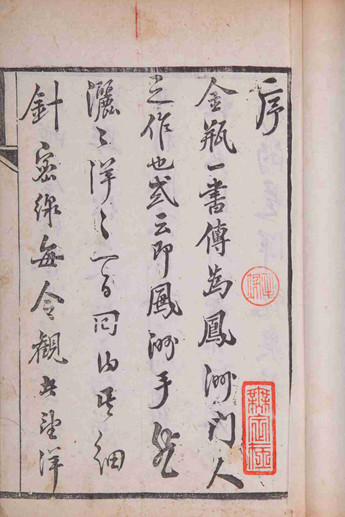 序
金瓶一書傳為鳳洲門人
之作也或云即鳳洲手然
灑〻洋〻一百回内其細
針密線每令觀者望洋